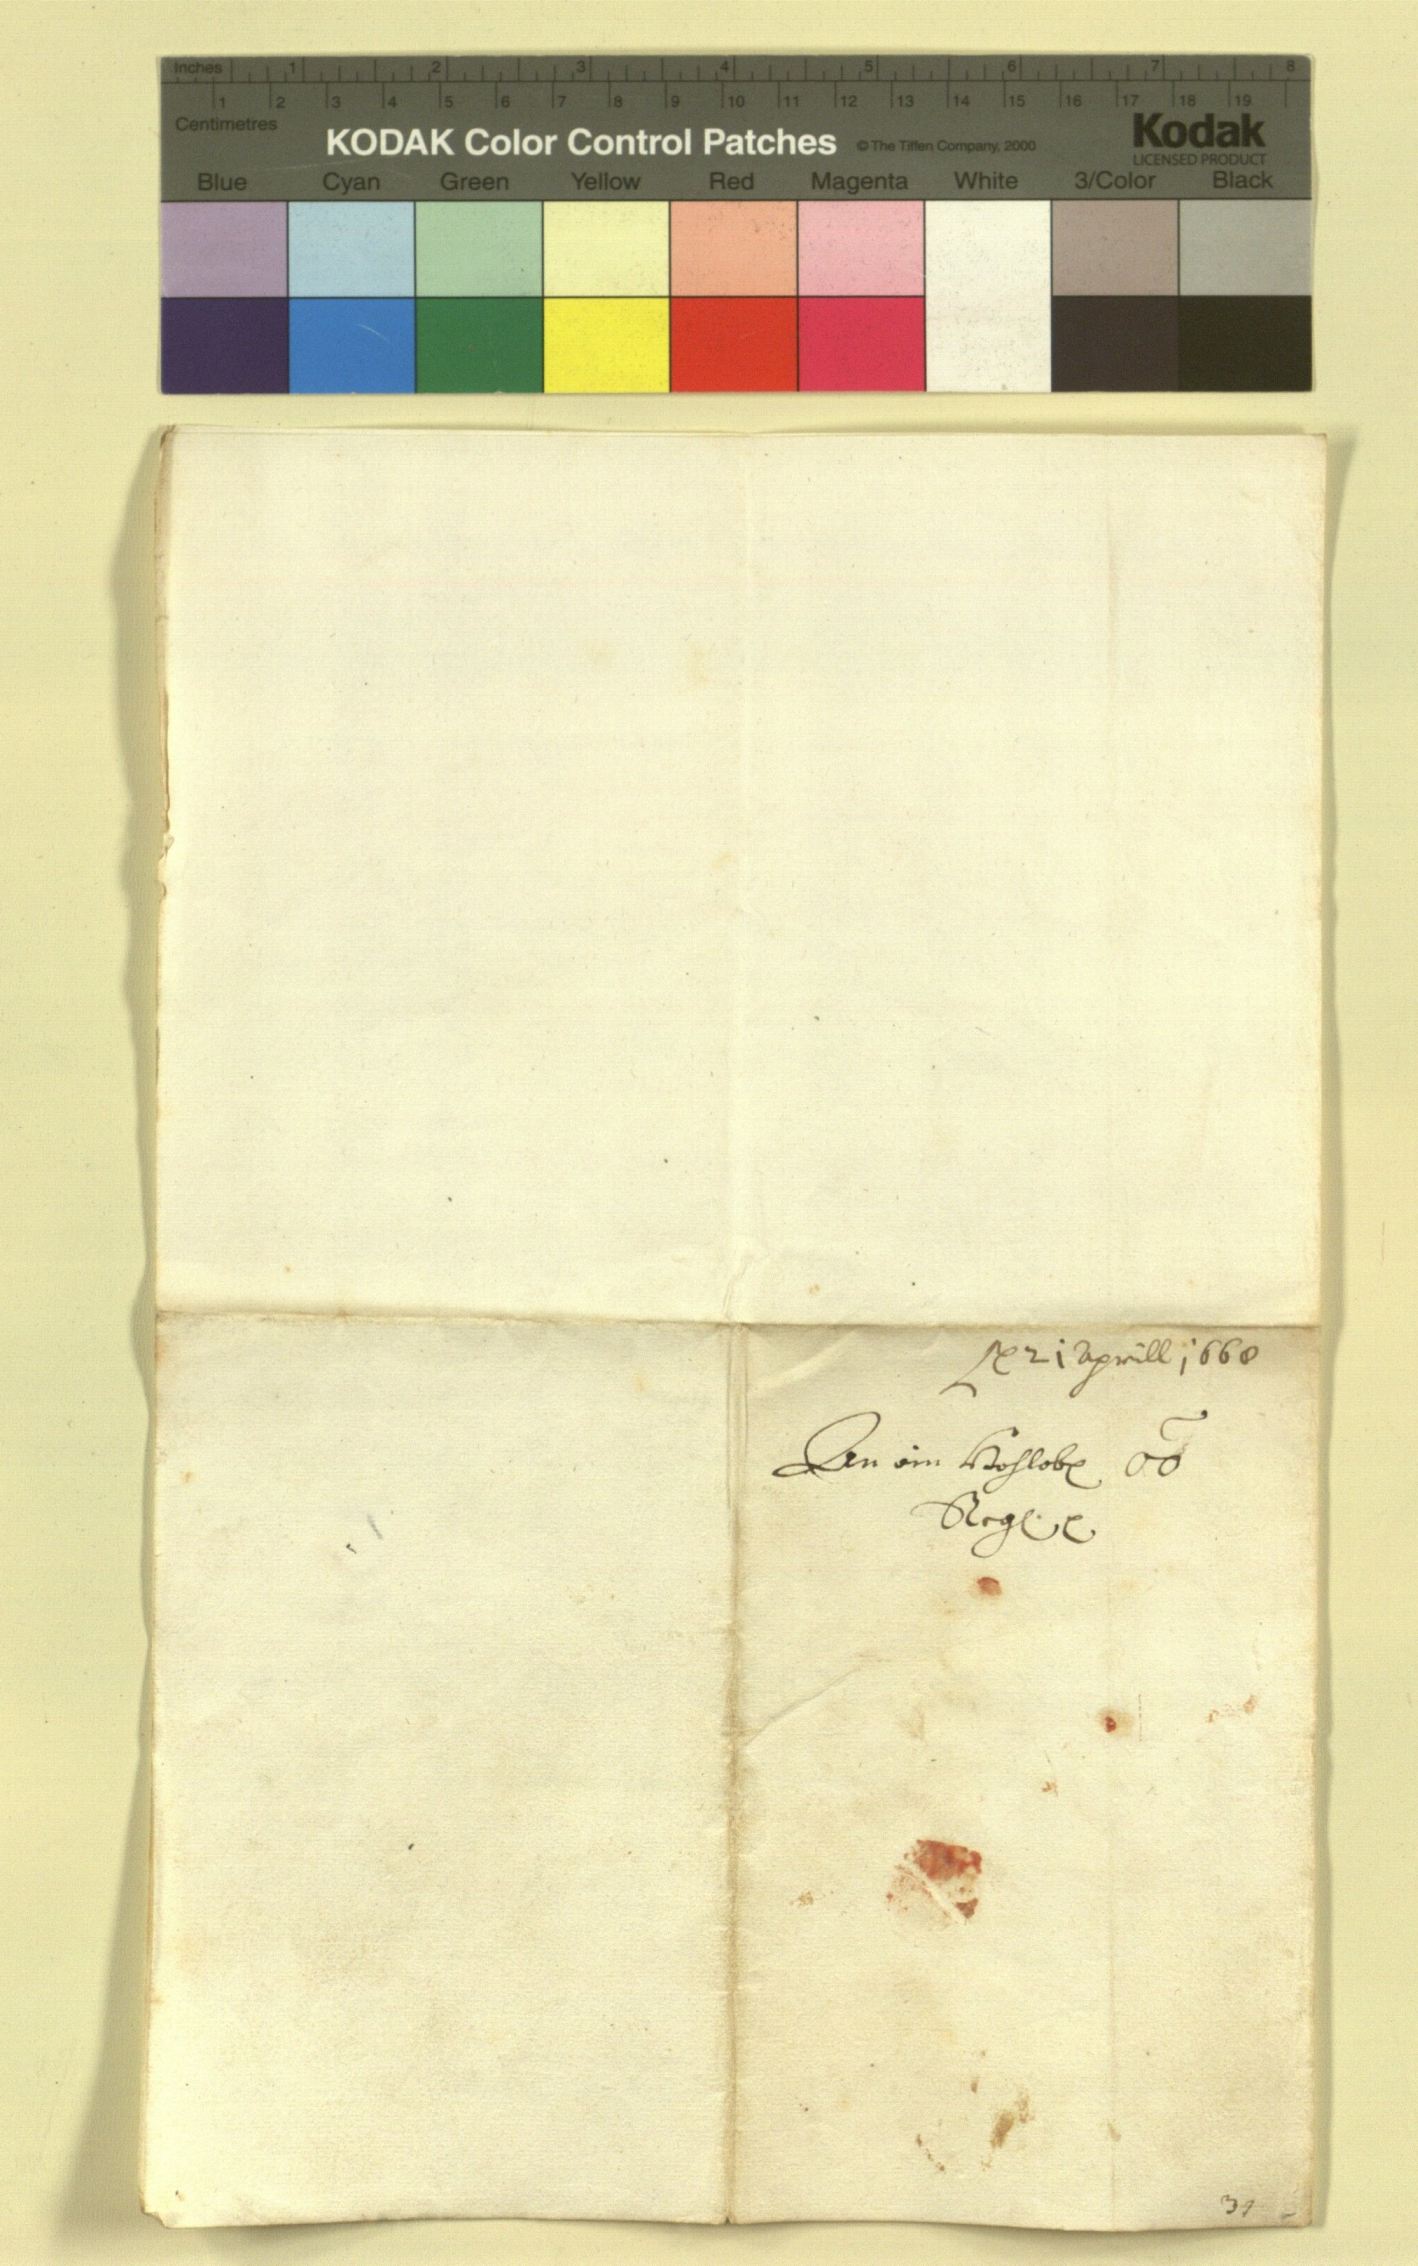 Inches 1 2 3 4 5 6 7 8
1 2 3 4 5 6 7 8 9 10 11 12 13 14 15 16 17 18 19
Centimetres
KODAK Color Control Patches © The Tiffen Company, 2000 Kodak
LICENSED PRODUCT
Blue Cyan Green Yellow Red Magenta White 3/Color Black
21 Aprill 1668
An ein Hochlobe
Regl.
31